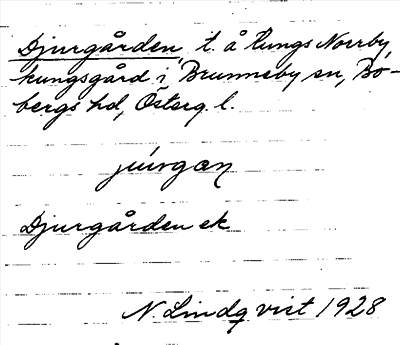 Djurgården, t. å Kungs Norrby
kungsgård i Brunneby sn, Bo-
bergs hd, Österg. l.
júrgan
Djurgården ek
N. Lindqvist 1928